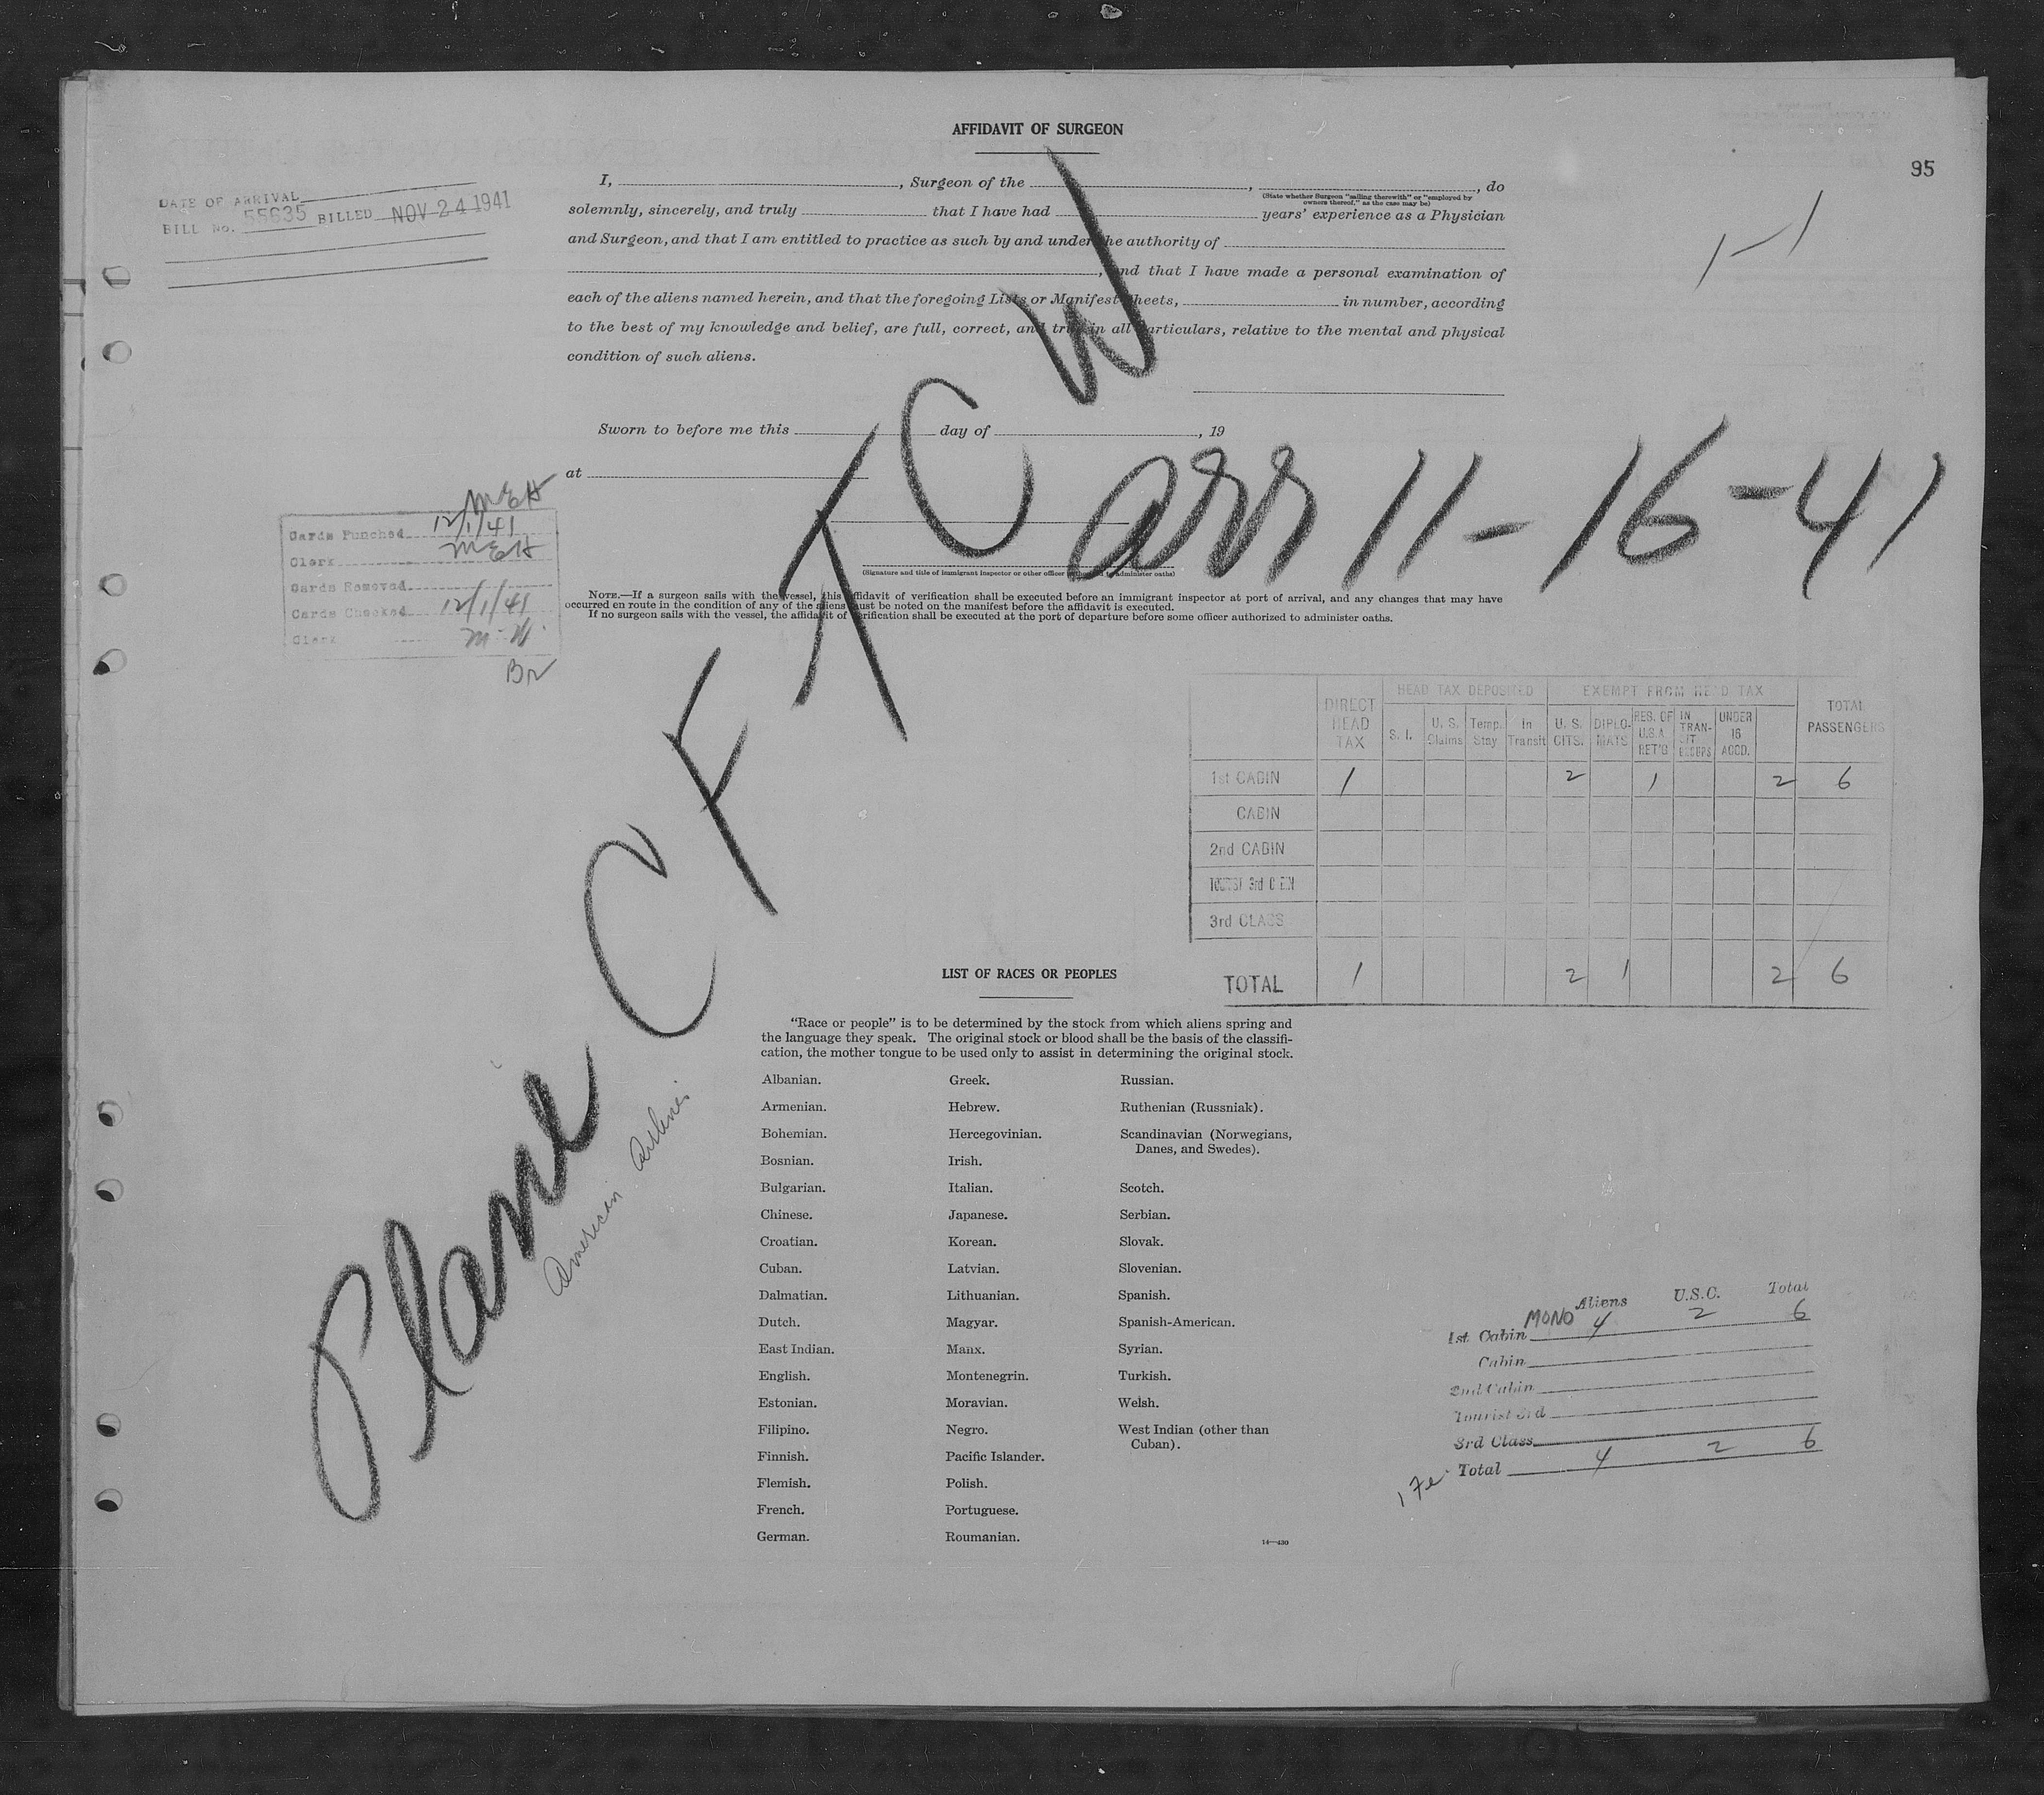 AFFIDAVIT OF SURGEON
95
I, , Surgeon of the , , do
(State whether Surgeon "sailing therewith" or "employed by
owners thereof," as the case may be)
solemnly, sincerely, and truly that I have had years' experience as a Physician
and Surgeon, and that I am entitled to practice as such by and under the authority of
, and that I have made a personal examination of
each of the aliens named herein, and that the foregoing Lists or Manifest Sheets, in number, according
to the best of my knowledge and belief, are full, correct, and true in all particulars, relative to the mental and physical
condition of such aliens.
DATE OF ARRIVAL
BILL No. 55635 BILLED NOV 24 1941
1-1
Sworn to before me this day of , 19
at
(Signature and title of immigrant inspector or other officer administer oaths)
NOTE.—If a surgeon sails with the vessel, this affidavit of verification shall be executed before an immigrant inspector at port of arrival, and any changes that may have
occurred en route in the condition of any of the aliens must be noted on the manifest before the affidavit is executed.
If no surgeon sails with the vessel, the affidavit of verification shall be executed at the port of departure before some officer authorized to administer oaths.
Plane C F T C W
arr 11-16-41
American Airlines
MEH
Cards Punched 12/1/41
Clerk MEH
Cards Removed
Cards Checked 12/1/41
Clerk M-W.
Br
DIRECT HEAD TAX
HEAD TAX DEPOSITED
EXEMPT FROM HEAD TAX
TOTAL PASSENGERS
S. I.
U. S. Claims
Temp. Stay
In Transit
U. S. CITS.
DIPLOMATS
RES. OF U.S.A. RET'G
IN TRANSIT
UNDER 16 ACCD.
1st CABIN 1 2 1 2 6
CABIN
2nd CABIN
TOURIST 3rd
3rd CLASS
TOTAL 1 2 1 2 6
LIST OF RACES OR PEOPLES
"Race or people" is to be determined by the stock from which aliens spring and
the language they speak. The original stock or blood shall be the basis of the classifi-
cation, the mother tongue to be used only to assist in determining the original stock.
Albanian. Greek. Russian.
Armenian. Hebrew. Ruthenian (Russniak).
Bohemian. Hercegovinian. Scandinavian (Norwegians,
Danes, and Swedes).
Bosnian. Irish.
Bulgarian. Italian. Scotch.
Chinese. Japanese. Serbian.
Croatian. Korean. Slovak.
Cuban. Latvian. Slovenian.
Dalmatian. Lithuanian. Spanish.
Dutch. Magyar. Spanish-American.
East Indian. Manx. Syrian.
English. Montenegrin. Turkish.
Estonian. Moravian. Welsh.
Filipino. Negro. West Indian (other than
Cuban).
Finnish. Pacific Islander.
Flemish. Polish.
French. Portuguese.
German. Roumanian.
14—430
Aliens U.S.C. Total
1st Cabin MONO 4 2 6
Cabin
2nd Cabin
Tourist 3rd
3rd Class
Total 4 2 6